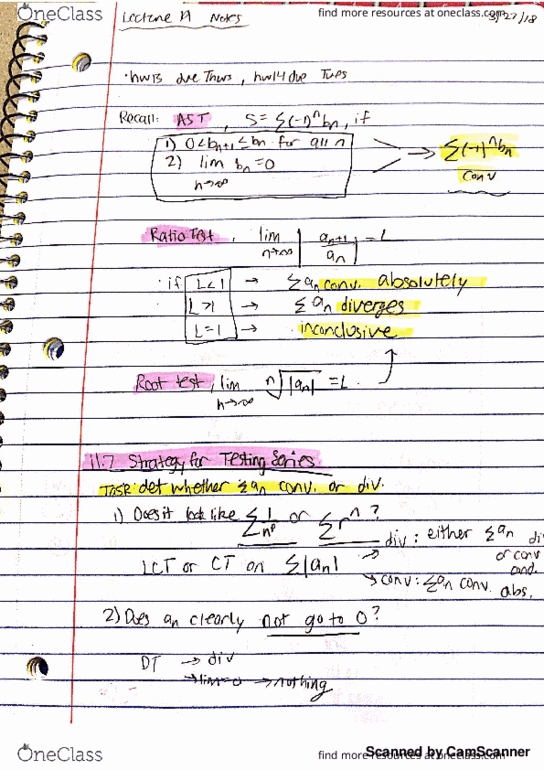 OneClass
find more resources at oneclass.com
Lecture 19 Notes
/27/18
·hw13 due Thurs, hw14 due Tues
Recall: AST, S = Σ(-1)ⁿbₙ, if
1) 0<bₙ₊₁≤bₙ for all n
2) lim bₙ=0
n→∞
→ Σ(-1)ⁿbₙ
conv
Ratio Test, lim n→∞ |aₙ₊₁/aₙ| = L
·if L<1 → Σaₙ conv. absolutely
L>1 → Σaₙ diverges
L=1 → inconclusive
Root test, lim n→∞ ⁿ√|aₙ| = L
11.7 Strategy for Testing Series
Task det whether Σaₙ conv. or div.
1) Does it look like Σ1/nᵖ or Σrⁿ?
LCT or CT on Σ|aₙ|
→ div: either Σaₙ di
or conv
cond.
→ conv: Σaₙ conv. abs.
2) Does aₙ clearly not go to 0?
DT → div
→ lim=0 → nothing
OneClass
find more resources at oneclass.com
Scanned by CamScanner